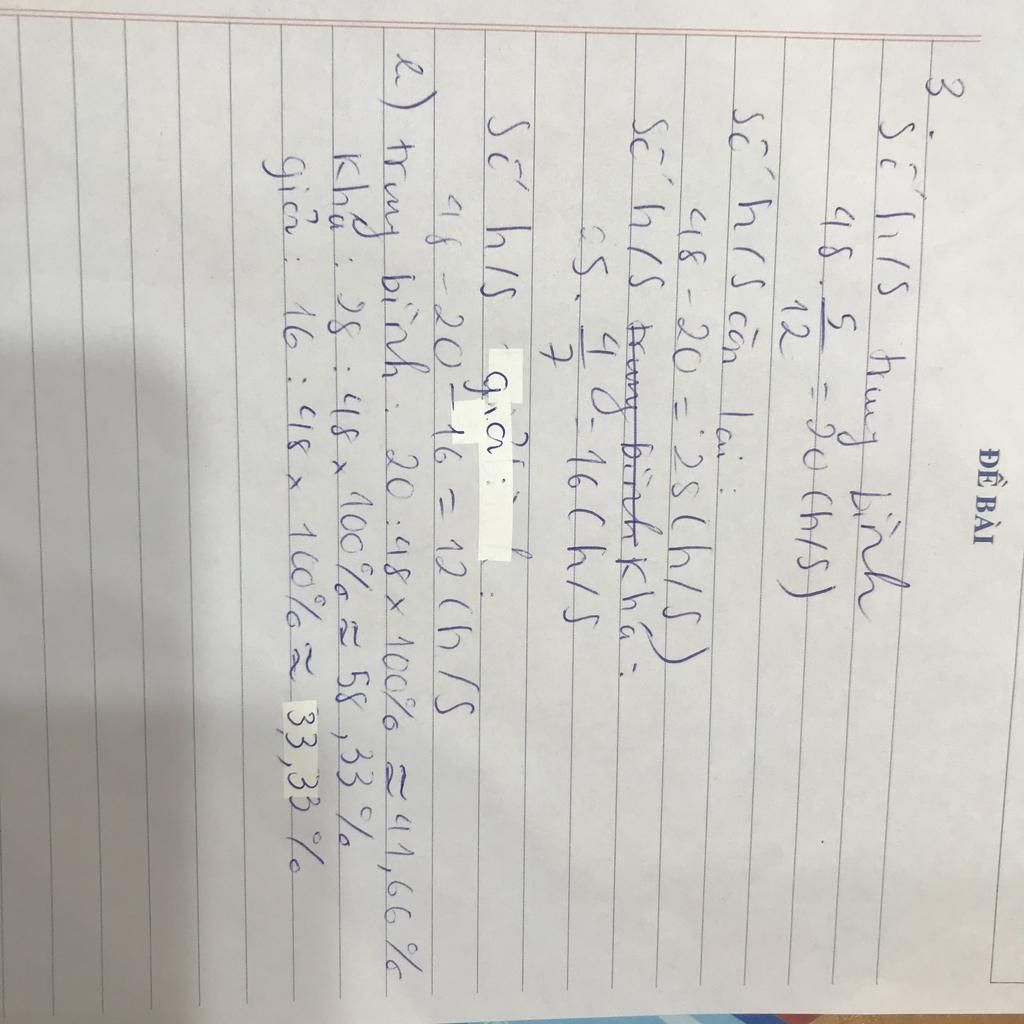 ĐỀ BÀI
3.
Số h/s trung bình
48 . 5/12 = 20 (h/s)
Số h/s còn lại :
48 - 20 = 28 (h/s)
Số h/s trung bình khá :
. 4/7 = 16 (h/s
Số h/s giỏi :
48 - 20 - 16 = 12 (h/s
b) trung bình : 20 : 48 x 100% ≈ 41,66 %
khá : 28 : 48 x 100% ≈ 58,33 %
giỏi : 16 : 48 x 100% ≈ 33,33 %